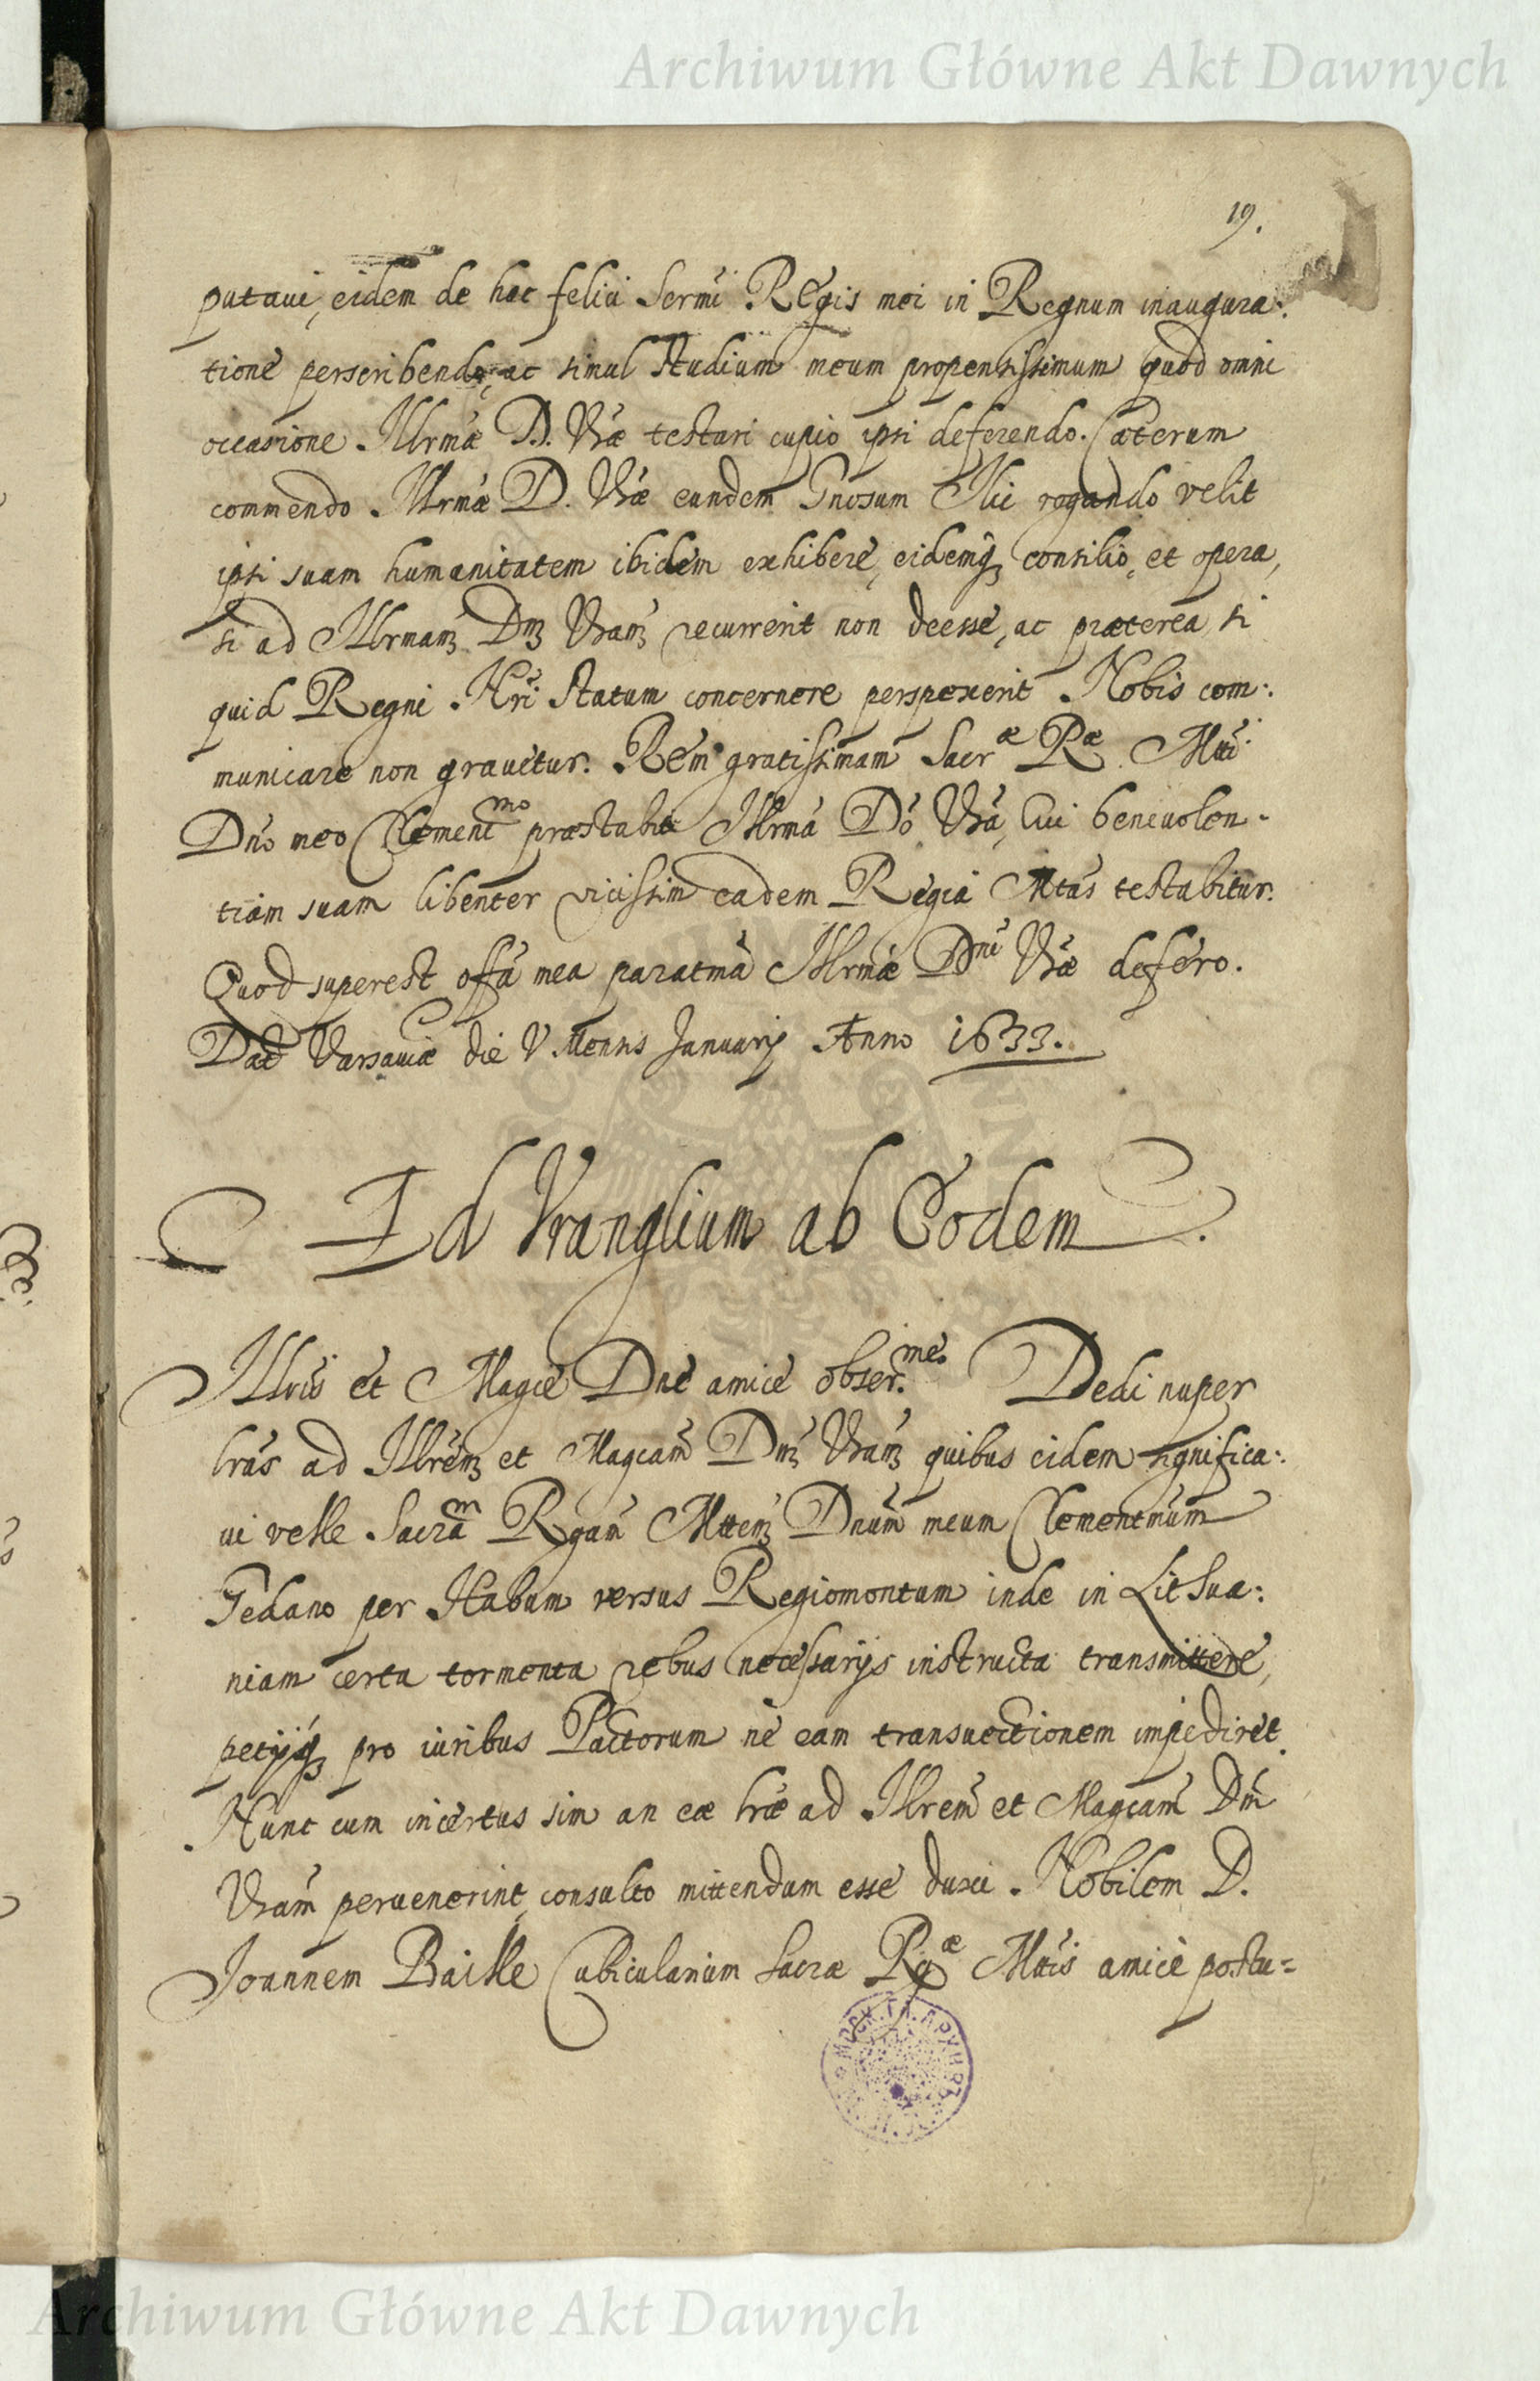 Archiwum Główne Akt Dawnych
19.
putaui, eidem de hac felici Sermi Regis mei in Regnum inaugura:
tione perscribendo, ac simul studium meum propensissimum quod omni
occasione Illrmæ D. Vræ testari cupio ipsi deferendo. Cæterum
commendo Illrmæ D. Vræ eundem Gnosum rogando velit
ipsi suam humanitatem ibidem exhibere, eidemq consilio, et opera,
si ad Illrmam Dm Vram recurrerit non deesse, ac præterea si
quid Regni Nri statum concernere perspexerit Nobis com:
municare non grauetur. Rem gratissimam Sacræ Ræ Mtti
Dno meo Clementmo præstabit Illrma Do Vra, cui beneuolen-
tiam suam libenter vicissim eadem Regia Mtas testabitur.
Quod superest offa mea paratma Illrmæ Dni Vræ defero.
Dat Varsauiæ die V Mensis Januarij Anno 1633.
Ad Vranglium ab Eodem
Illris et Magce Dne amice obser.me. Dedi nuper
lras ad Illrem et Magcam Dm Vram quibus eidem significa:
ui velle Sacram Rgam Mttem Dnum meum Clementmum
Gedano per Habum versus Regiomontum inde in Lithua:
niam certa tormenta rebus necessarijs instructa transmittere,
petijq pro iuribus Pactorum ne eam transuectionem impediret.
Nunc cum incertus sim an eæ lræ ad Illrem et Magcam Dm
Vram peruenerint, consulto mittendum esse duxi Nobilem D.
Joannem Baille Cubicularium Sacræ Rgæ Mttis amice postu=
Archiwum Główne Akt Dawnych